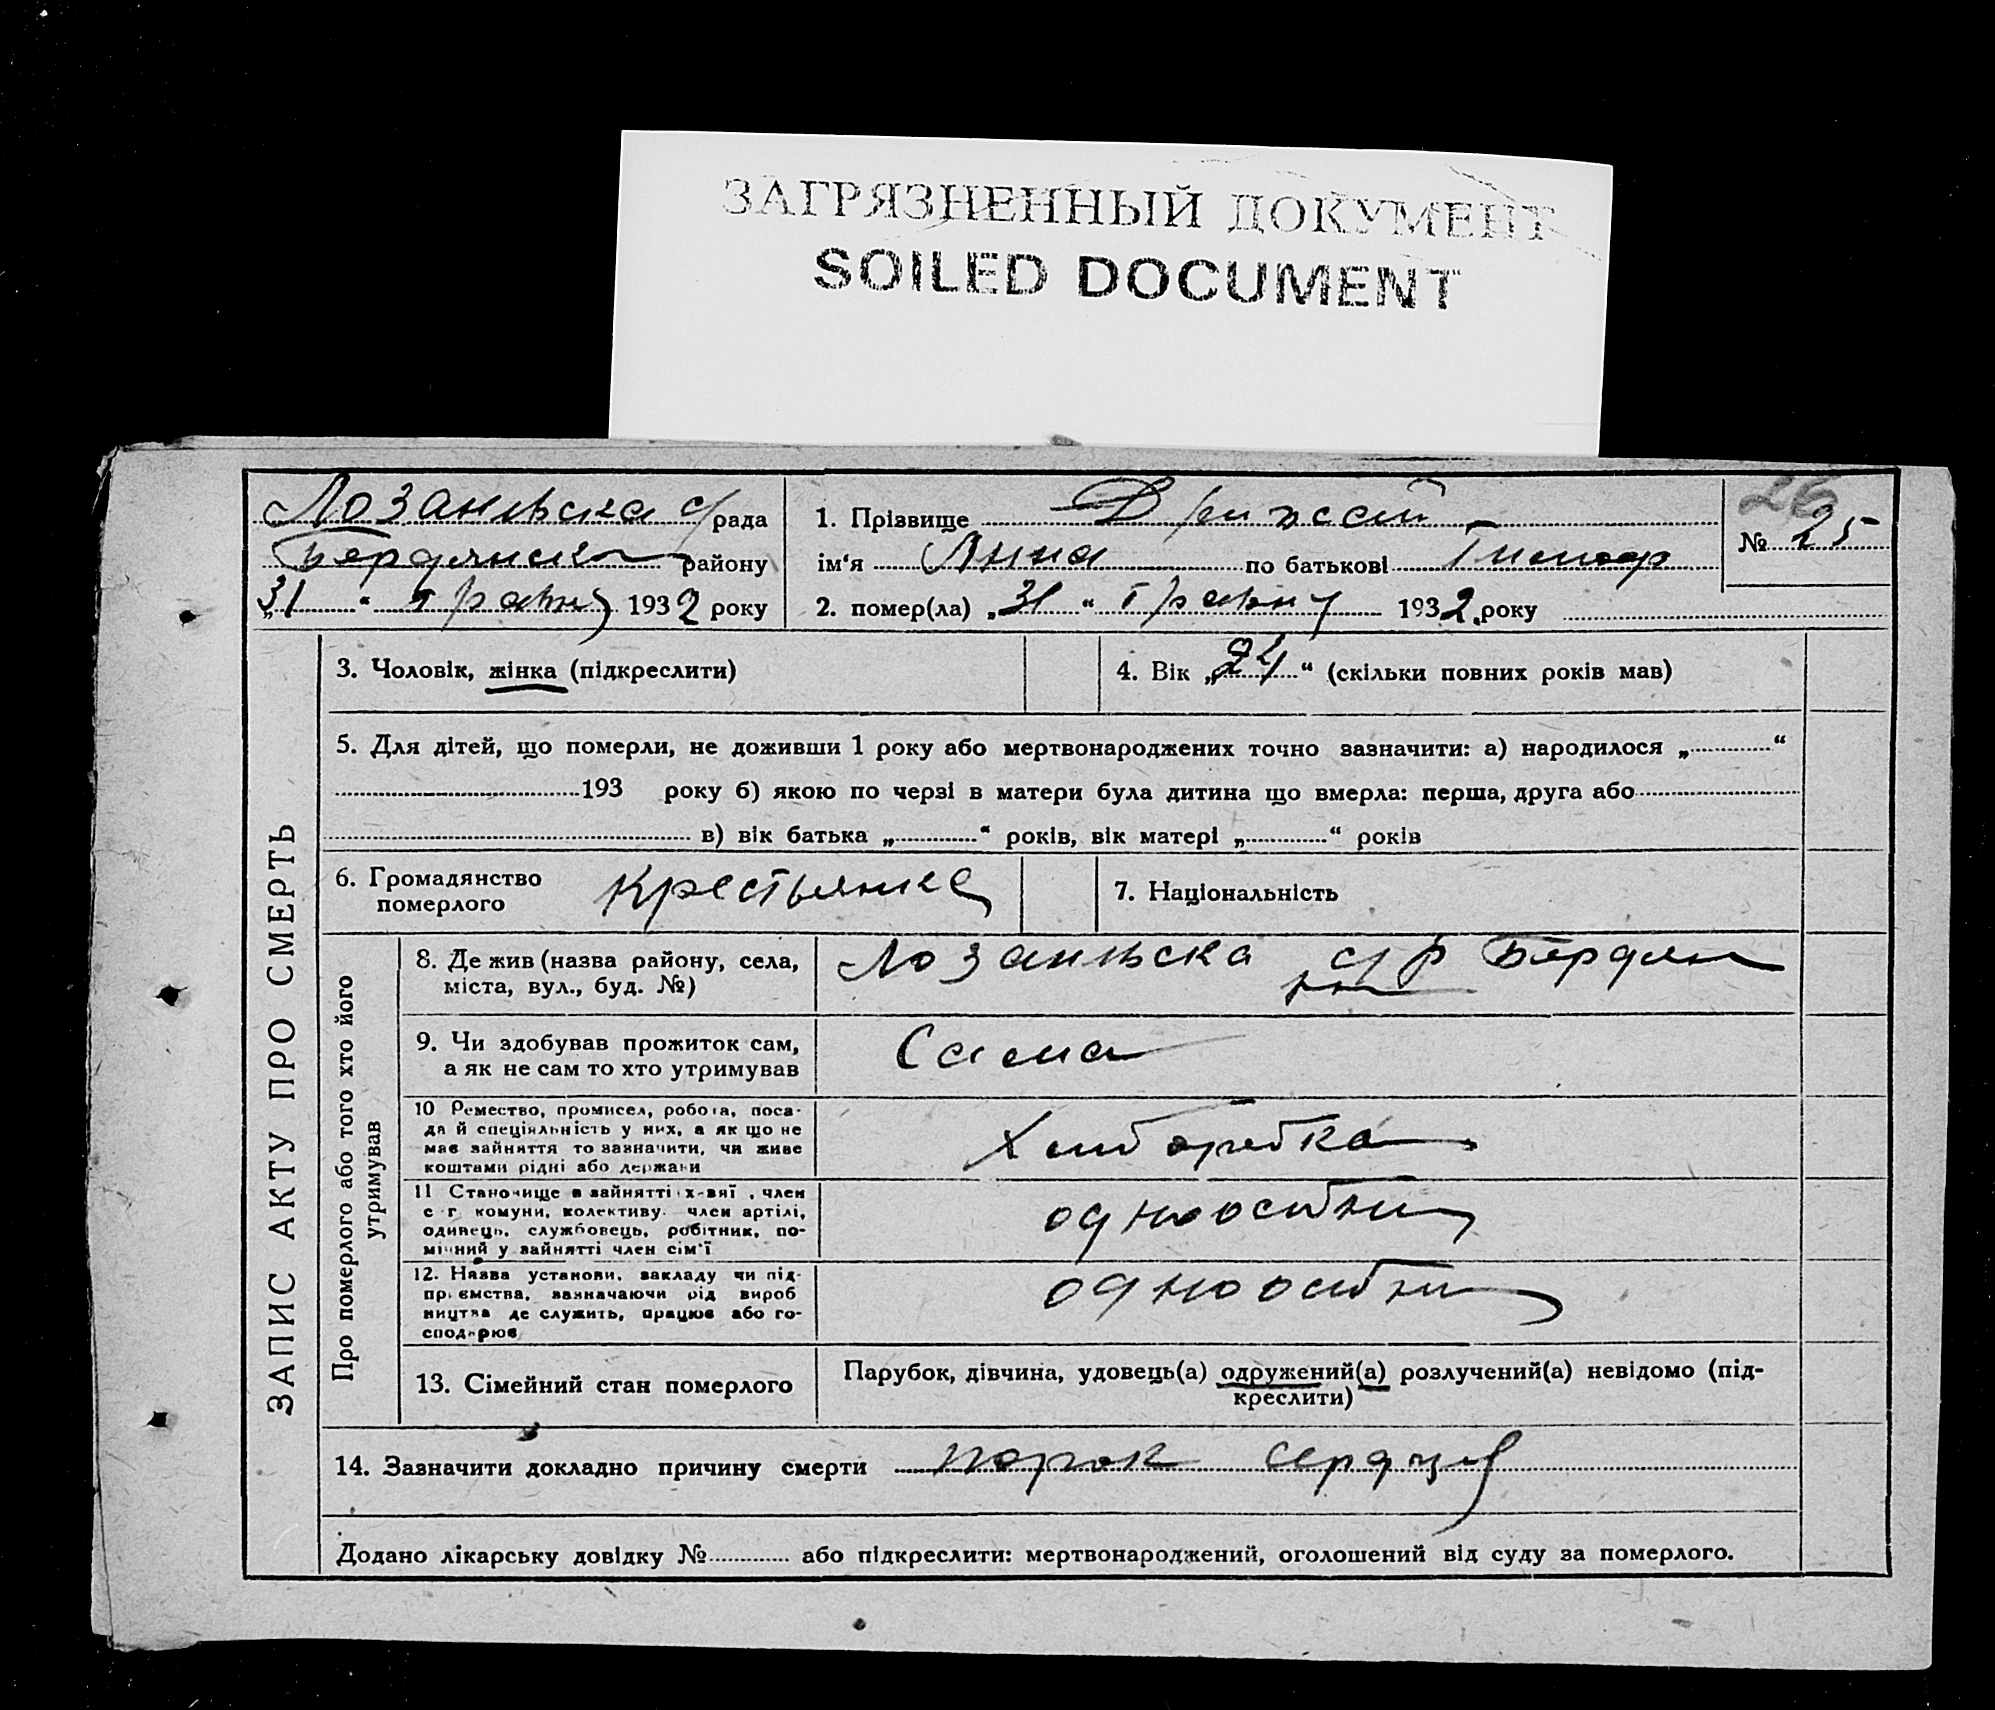 ЗАГРЯЗНЕННЫЙ ДОКУМЕНТ
SOILED DOCUMENT
26
Лозанивська с/рада
Бердянськ району
„31“ Травн 1932 року
1. Прізвище
ім'я Анна по батькові
2. помер(ла) „31“ Травну 1932 року
№ 25
ЗАПИС АКТУ ПРО СМЕРТЬ
3. Чоловік, жінка (підкреслити)
4. Вік „24“ (скільки повних років мав)
5. Для дітей, що померли, не доживши 1 року або мертвонароджених точно зазначити: а) народилося „ “
193 року б) якою по черзі в матери була дитина що вмерла: перша, друга або
в) вік батька „ “ років, вік матері „ “ років
6. Громадянство
померлого
крестьянка
7. Національність
Про померлого або того хто його
утримував
8. Де жив (назва району, села,
міста, вул., буд. №)
Лозанивська с/р Бердян
9. Чи здобував прожиток сам,
а як не сам то хто утримував
Сама
10 Ремество, промисел, робота, поса-
да й спеціяльність у них, а як що не
має зайняття то зазначити, чи живе
коштами рідні або держави
Хлиборобка
11 Становище в зайнятті х-вяї, член
с г комуни, колективу, член артілі,
одинець, службовець, робітник, по-
мічний у зайнятті член сім'ї
одноосибни
12. Назва установи, закладу чи під-
приємства, зазначаючи рід вироб
ництва де служить, працює або го-
сподарює
одноосибни
13. Сімейний стан померлого
Парубок, дівчина, удовець(а) одружений(а) розлучений(а) невідомо (під-
креслити)
14. Зазначити докладно причину смерти порок сердця
Додано лікарську довідку № або підкреслити: мертвонароджений, оголошений від суду за померлого.